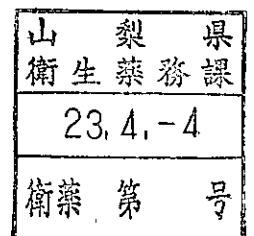 山梨県
衛生薬務課
23.4.-4
衛薬第 号